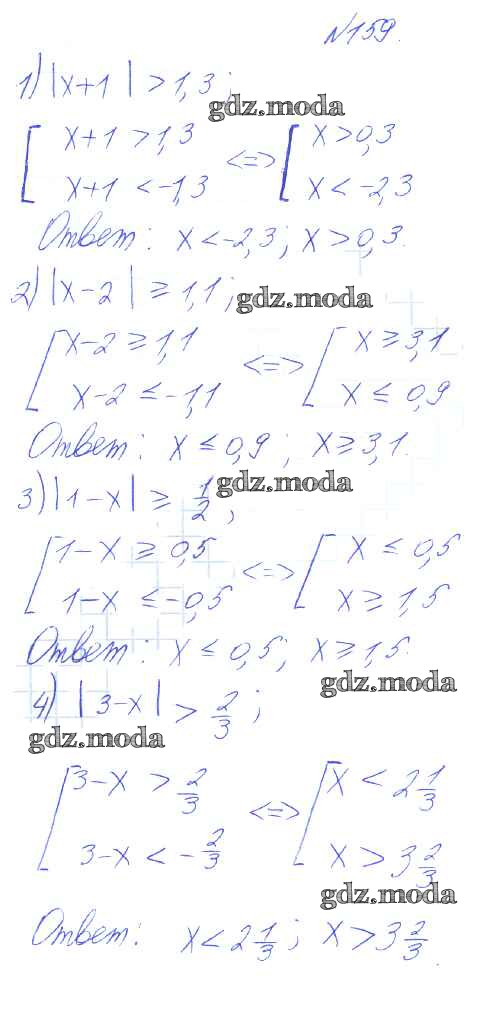 №159.
1) |x+1| > 1,3;
gdz.moda
[ x+1 > 1,3 <=> [ x > 0,3
x+1 < -1,3 x < -2,3
Ответ: x < -2,3; x > 0,3.
2) |x-2| ≥ 1,1;
gdz.moda
[ x-2 ≥ 1,1 <=> [ x ≥ 3,1
x-2 ≤ -1,1 x ≤ 0,9
Ответ: x ≤ 0,9; x ≥ 3,1.
3) |1-x| ≥ 1/2;
gdz.moda
[ 1-x ≥ 0,5 <=> [ x ≤ 0,5
1-x ≤ -0,5 x ≥ 1,5
Ответ: x ≤ 0,5; x ≥ 1,5.
gdz.moda
4) |3-x| > 2/3;
gdz.moda
[ 3-x > 2/3 <=> [ x < 2 1/3
3-x < -2/3 x > 3 2/3
gdz.moda
Ответ: x < 2 1/3; x > 3 2/3.